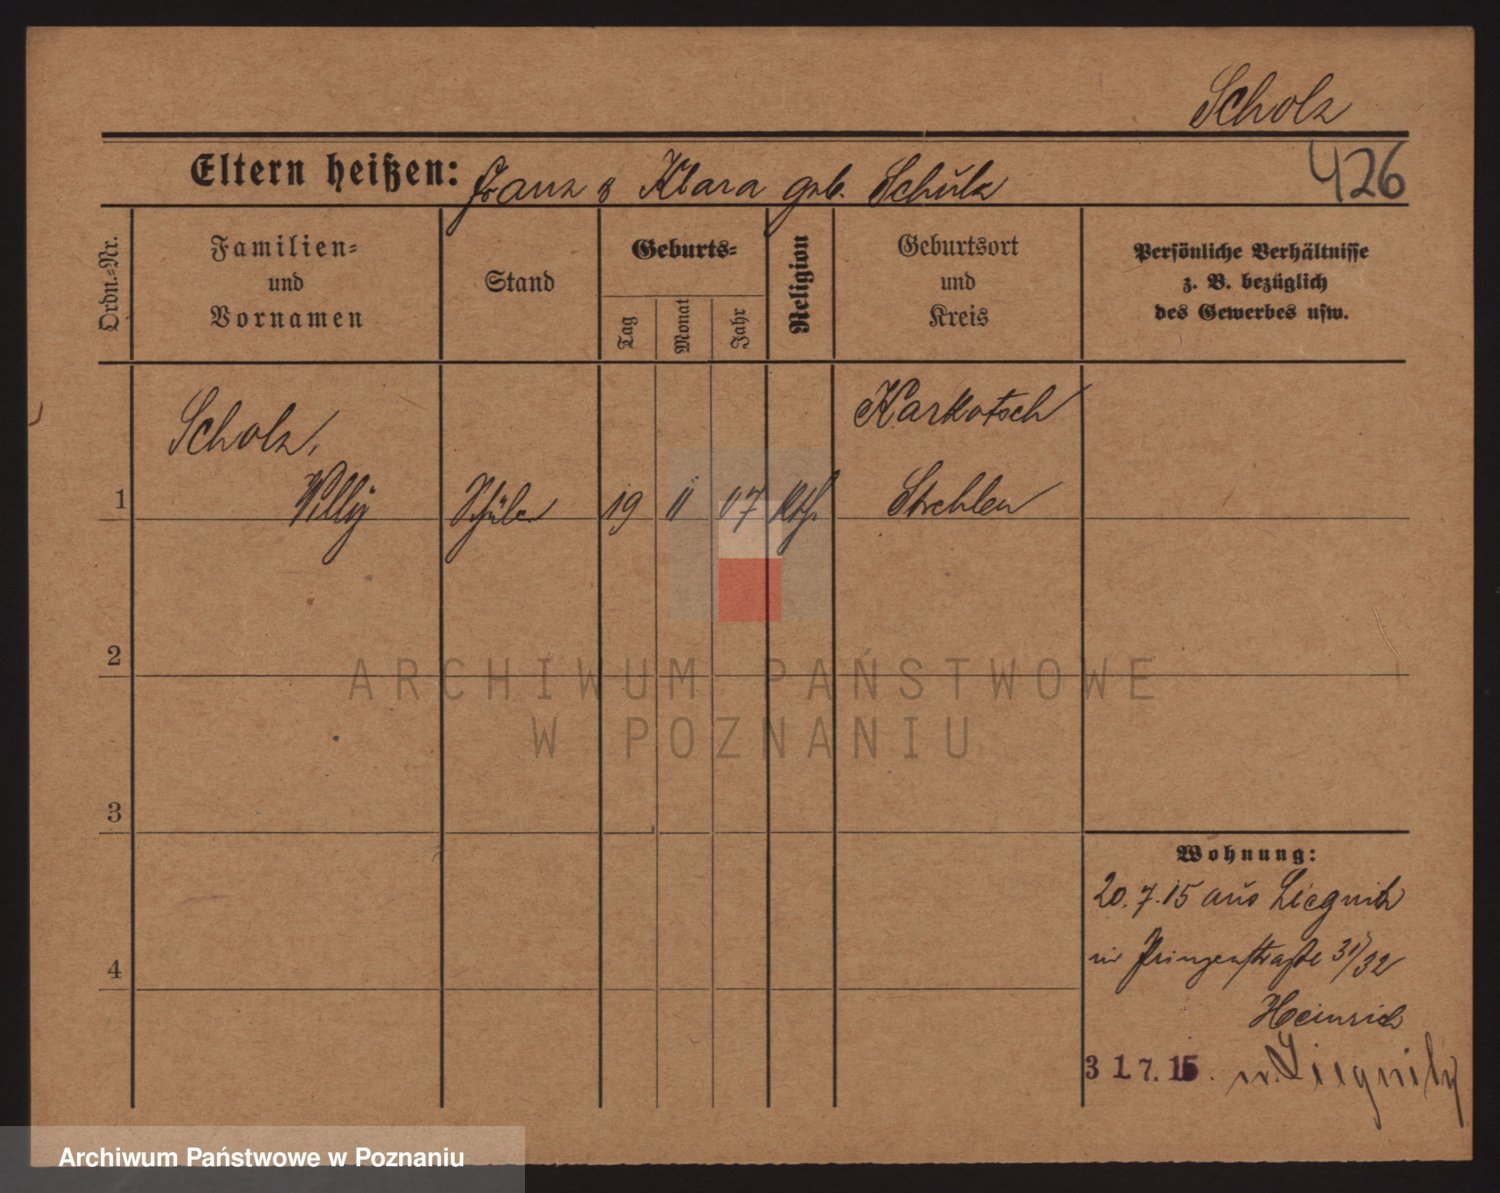 Scholz
426
Eltern heißen: Franz & Klara geb. Schulz
Ordn.-Nr.
Familien-
und
Vornamen
Stand
Geburts-
Tag
Monat
Jahr
Religion
Geburtsort
und
Kreis
Persönliche Verhältnisse
z. B. bezüglich
des Gewerbes usw.
Scholz,
Karkotsch
1 Willy Schüler 19 11 07 kth. Strehlen
2
ARCHIWUM PAŃSTWOWE
W POZNANIU
3
Wohnung:
20.7.15 aus Liegnitz
4
in Prinzenstraße 31/32
Heinrich
31.7.15. n. Liegnitz
Archiwum Państwowe w Poznaniu